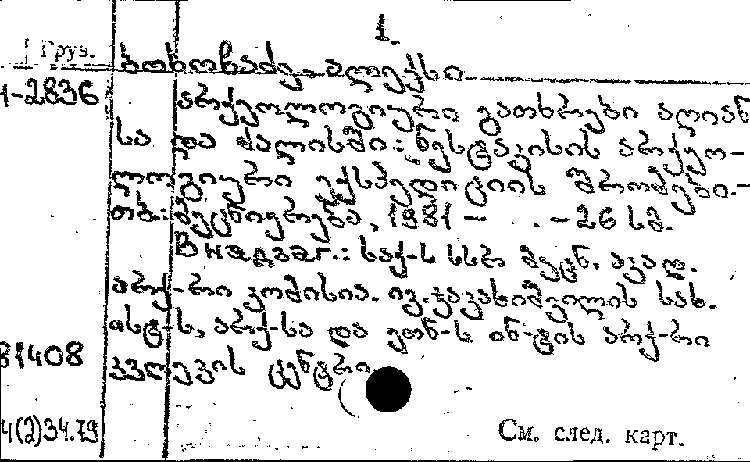 1.
Груз.
ბოხოჩაძე, ალექსი
1-2836
არქეოლოგიური გათხრები აღაიან
სა და ძალისში: ნასტაკისის არქეო-
ლოგიური ექსპედიციის შრომები.-
თბ.: მეცნიერება, 1981 - . - 26 სმ.
В надзаг.: საქ-ს სსრ მეცნ. აკად.
არქ-რი კომისია. ივ. ჯავახიშვილის სახ.
ისტ-ს, არქ-სა და ეთნ-ს ინ-ტის არქ-რი
81408
კვლევის ცენტრი
4(2)34.79
См. след. карт.